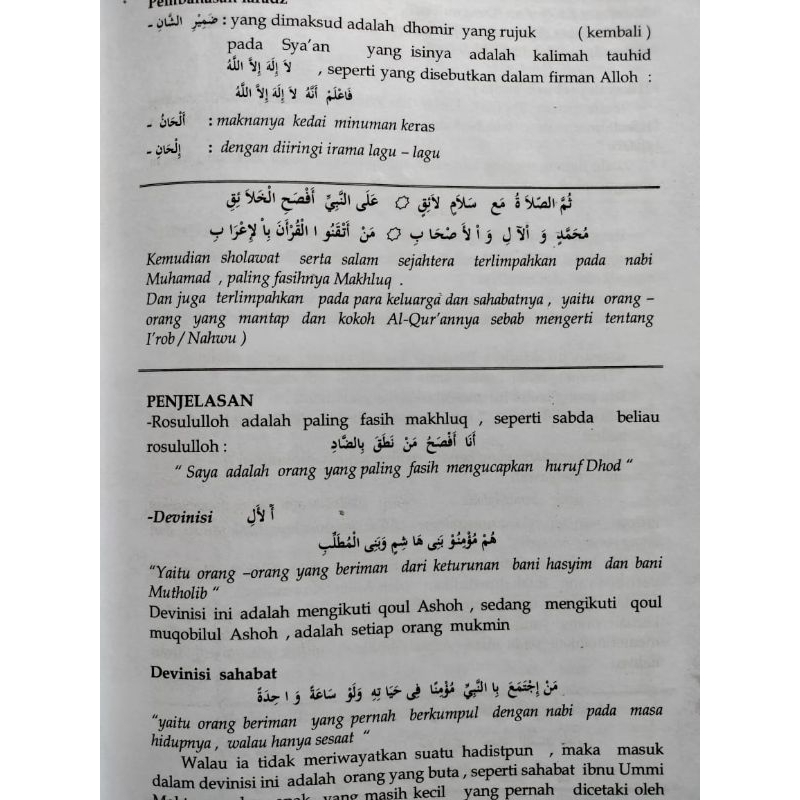 Pembahasan lafadz
ضَمِيْرِ الشَّانِ - : yang dimaksud adalah dhomir yang rujuk ( kembali )
pada Sya'an yang isinya adalah kalimah tauhid
لاَ إِلَهَ إِلاَّ اللَّهُ , seperti yang disebutkan dalam firman Alloh :
فَاعْلَمْ أَنَّهُ لاَ إِلَهَ إِلاَّ اللَّهُ
أَلْحَانُ - : maknanya kedai minuman keras
إِلْحَانِ - : dengan diiringi irama lagu – lagu
ثُمَّ الصَّلاَ ةُ مَع سَلاَمٍ لاَئِقٍ ۞ عَلَى النَّبِيِّ أَفْصَحِ الْخَلاَ ئِقِ
مُحَمَّدٍ وَ الآلِ وَ اْلأَ صْحَا بِ ۞ مَنْ أَتْقَنُو ا الْقُرْأَنَ بِاْ لإِعْرَا بِ
Kemudian sholawat serta salam sejahtera terlimpahkan pada nabi
Muhamad , paling fasihnya Makhluq .
Dan juga terlimpahkan pada para keluarga dan sahabatnya , yaitu orang –
orang yang mantap dan kokoh Al-Qur'annya sebab mengerti tentang
I'rob / Nahwu )
PENJELASAN
-Rosululloh adalah paling fasih makhluq , seperti sabda beliau
rosululloh : أَنَا أَفْصَحُ مَنْ نَطَقَ بِالضَّادِ
" Saya adalah orang yang paling fasih mengucapkan huruf Dhod "
-Devinisi أَ لأَلِ
هُمْ مُؤْمِنُوْ بَنِى هَا شِمٍ وَبَنِى الْمُطَلِّبِ
"Yaitu orang –orang yang beriman dari keturunan bani hasyim dan bani
Mutholib "
Devinisi ini adalah mengikuti qoul Ashoh , sedang mengikuti qoul
muqobilul Ashoh , adalah setiap orang mukmin
Devinisi sahabat
مَنْ إِجْتَمَعَ بِا النَّبِيِّ مُؤْمِنًا فِى حَيَا تِهِ وَلَوْ سَاعَةً وَ ا حِدَةً
"yaitu orang beriman yang pernah berkumpul dengan nabi pada masa
hidupnya , walau hanya sesaat "
Walau ia tidak meriwayatkan suatu hadistpun , maka masuk
dalam devinisi ini adalah orang yang buta , seperti sahabat ibnu Ummi
yang masih kecil yang pernah dicetaki oleh